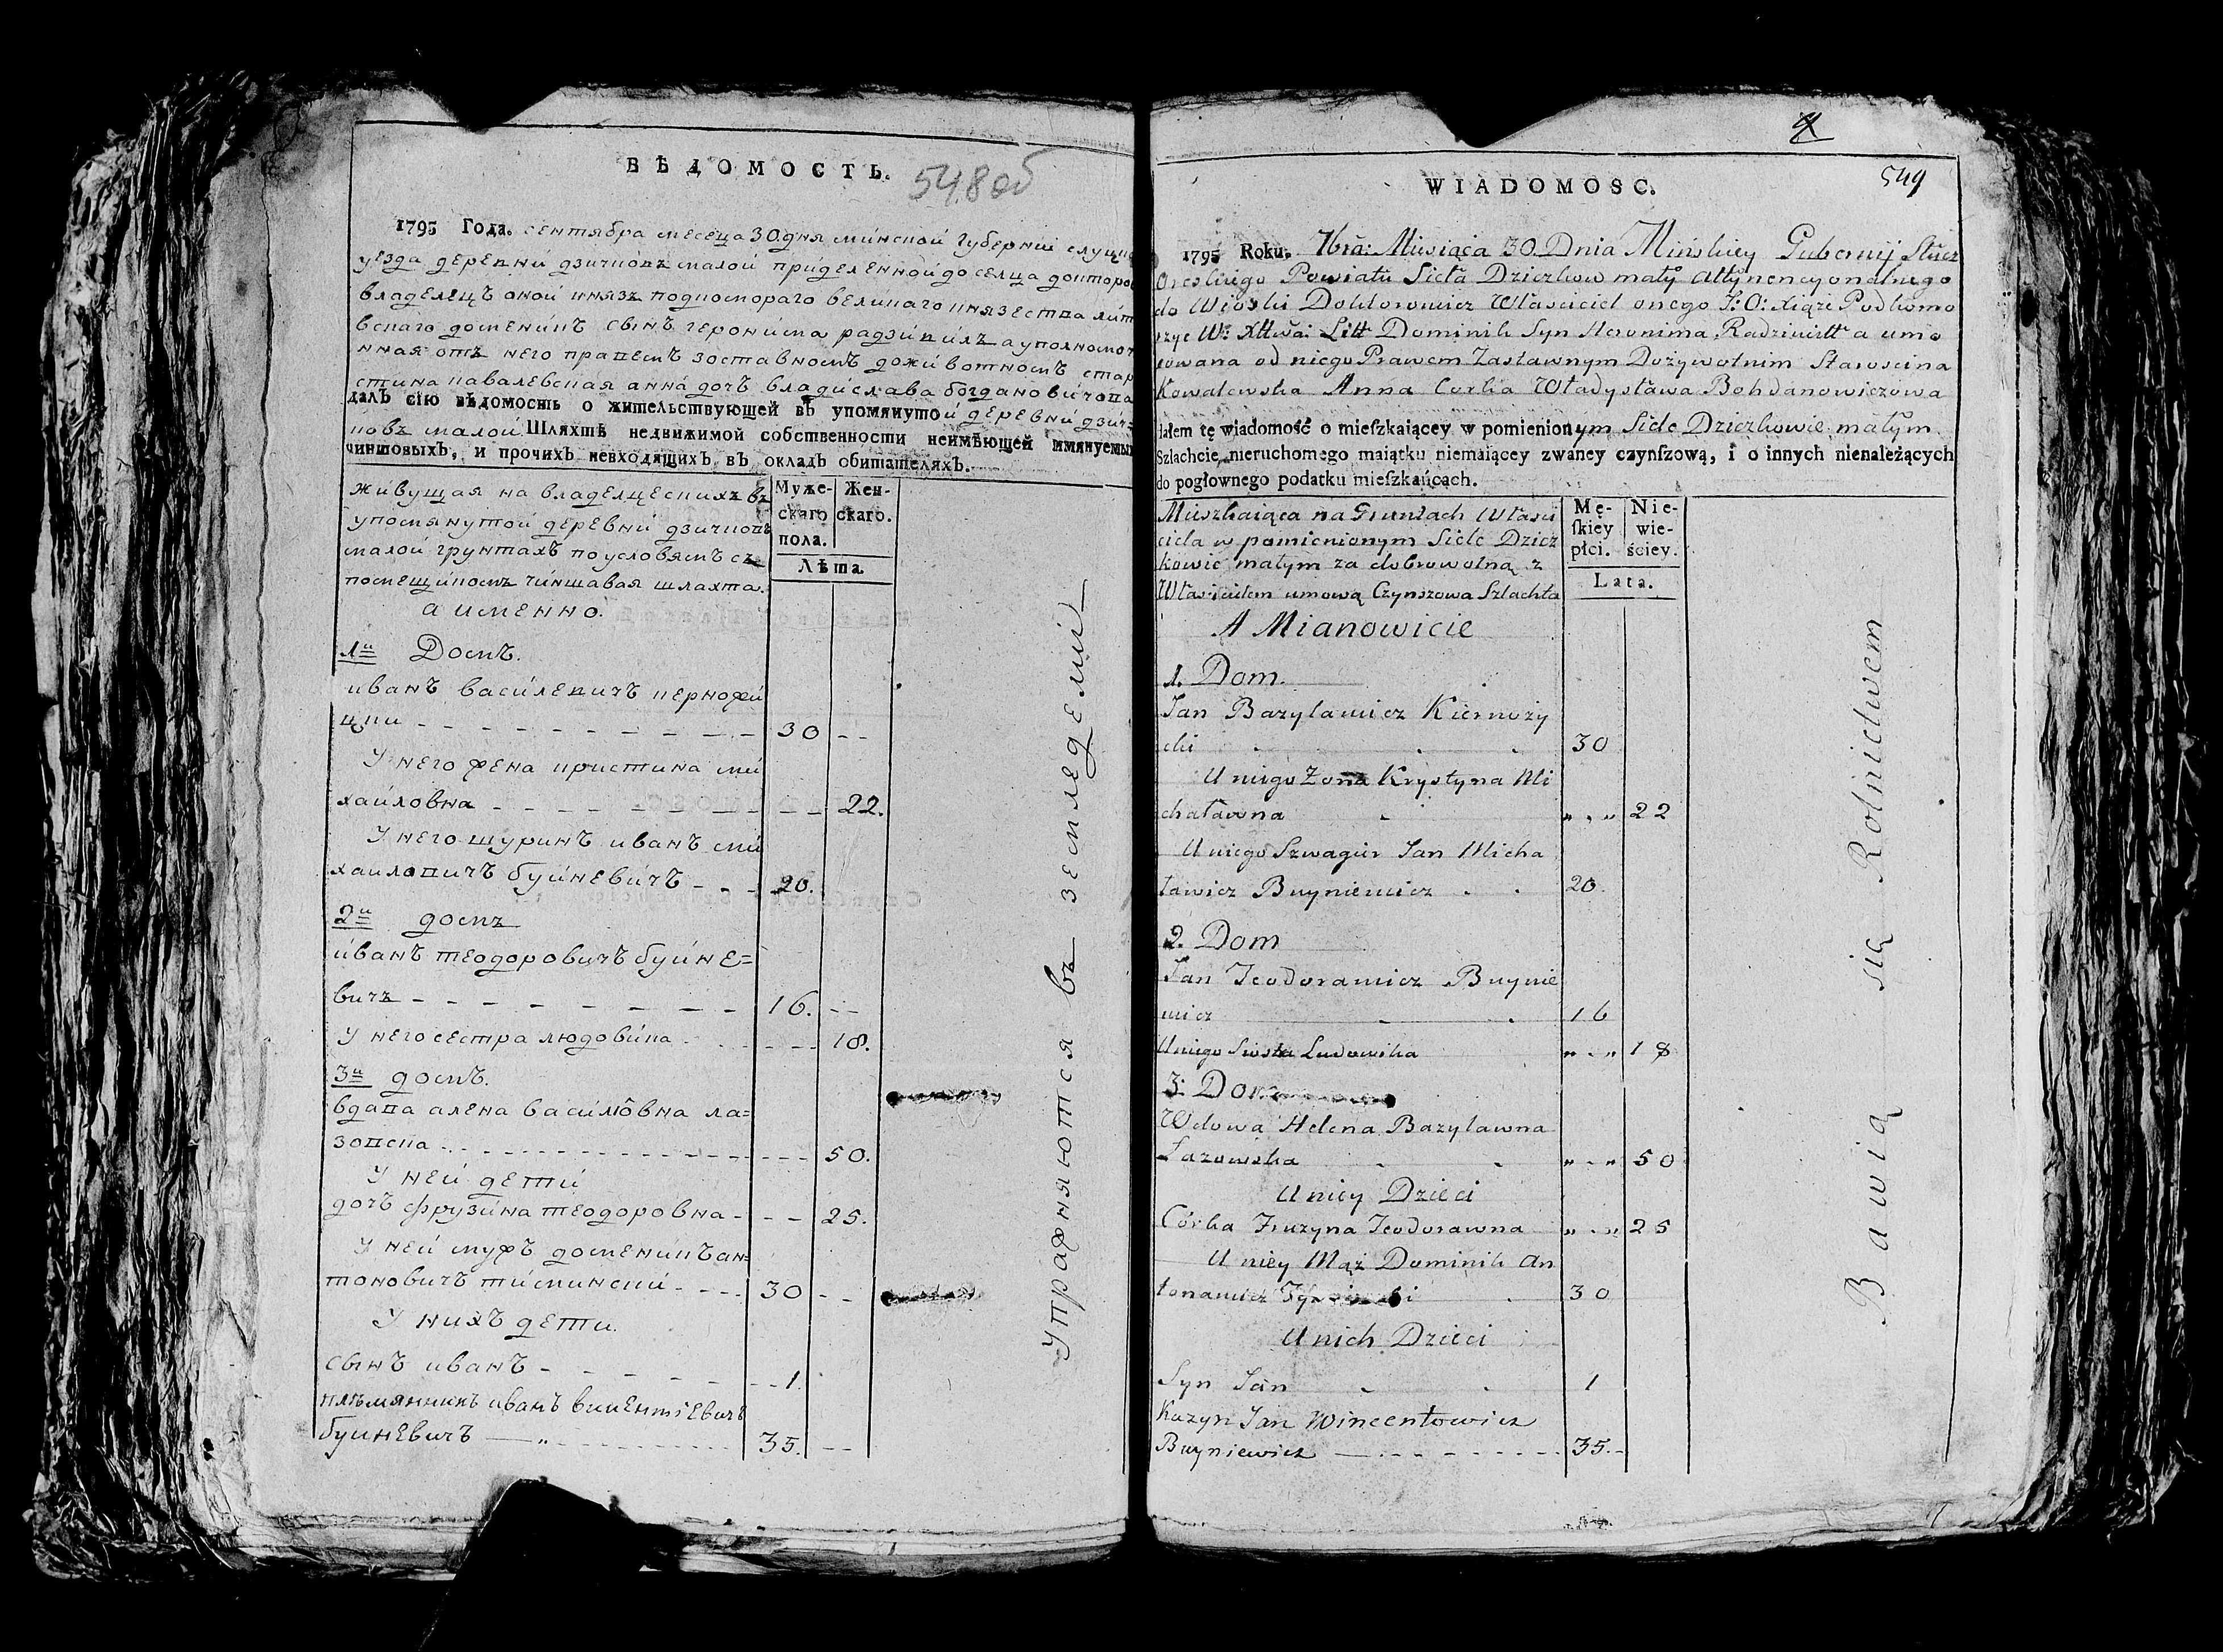 ВѢДОМОСТЬ.
548 об
1795 Года. сентября месеца 30 дня минской губерний слуцко
уезда деревни дзичковъ малой приделенной до селца докторо
владелецъ оной князь подкомораго великаго князества лит
вскаго доменикъ сынъ геронима радзивилъ а уполномоч
нная отъ него правемъ зоставномъ доживотномъ стар
стина ковалевская анна дочь владислава богдановичова
далъ сію вѣдомость о жительствующей въ упомянутой деревни дзич=
ковъ малой Шляхтѣ недвижимой собственности неимѣющей имянуемы
чиншовыхъ, и прочихъ невходящихъ въ окладъ обитателяхъ.
живущая на владелцескихъ въ
упомянутой деревни дзичковъ
малой грунтахъ по условямъ съ
помещикомъ чиншавая шляхта.
а именно.
Муже-
скаго
пола.
Жен-
скаго.
Лѣта
1й Домъ.
иванъ василевичъ керножи
цки 30
У него жена кристина ми
хайловна 22.
У него шуринъ иванъ ми
хайловичъ буйневичъ 20.
2й домъ
иванъ теодоровичъ буйне=
вичъ 16.
У него сестра людовика 18.
3й домъ.
вдава алена василовна ла=
зовска 50.
У ней дети
дочь фрузина теодоровна 25.
У ней мужъ доменикъ ан=
тоновичъ тиминский 30
У нихъ дети.
сынъ иванъ 1.
племянникъ иванъ викентіевичъ
буиневичъ 35.
Упражняются въ земледелий
4
549
WIADOMOSC.
1795 Roku. 7bra: Miesiąca 30 Dnia Minskiey Gubernij Słucz
Oreskiego Powiatu Sieła Dziczkow mały Attynencyonalnego
do Wioski Doktorowicz Własciciel onego J: O: Xiąże Podkomo
rzyc W: Xttwa: Litt Dominik Syn Heronima Radziwiłł a umo
cowana od niego Prawem Zastawnym Dożywotnim Staroscina
Kowalewska Anna Corka Władysława Bohdanowiczowa
dałem tę wiadomość o mieſzkaiącey w pomienionym Siele Dziczkowie małym
Szlachcie nieruchomego maiątku niemaiącey zwaney czynſzową, i o innych nienależących
do pogłownego podatku mieſzkańcach.
Mieszkaiąca na Gruntach Własci
ciela w pomienionym Siele Dzicz
kowie małym za dobrowolną z
Własicielem umową Czynszowa Szlachta
A Mianowicie
Mę-
ſkiey
płci.
Nie-
wie-
ściey.
Lata.
1. Dom.
Jan Bazylawicz Kiernoży
cki 30
U niego Zona Krystyna Mi
chaławna 22
U niego Szwagier Jan Micha
ławicz Buyniewicz 20.
2. Dom
Jan Teodorawicz Buynie
wicz 16
U niego Siostra Ludowika 18
3: Dom
Wdowa Helena Bazylawna
Łazowska 50
U niey Dzieci
Córka Fruzyna Teodorawna 25
U niey Mąż Dominik An
tonawicz
30
U nich Dzieci
Syn Jan 1
Kuzyn Jan Wincentowicz
Buyniewicz 35.
Bawią się Rolnictwem